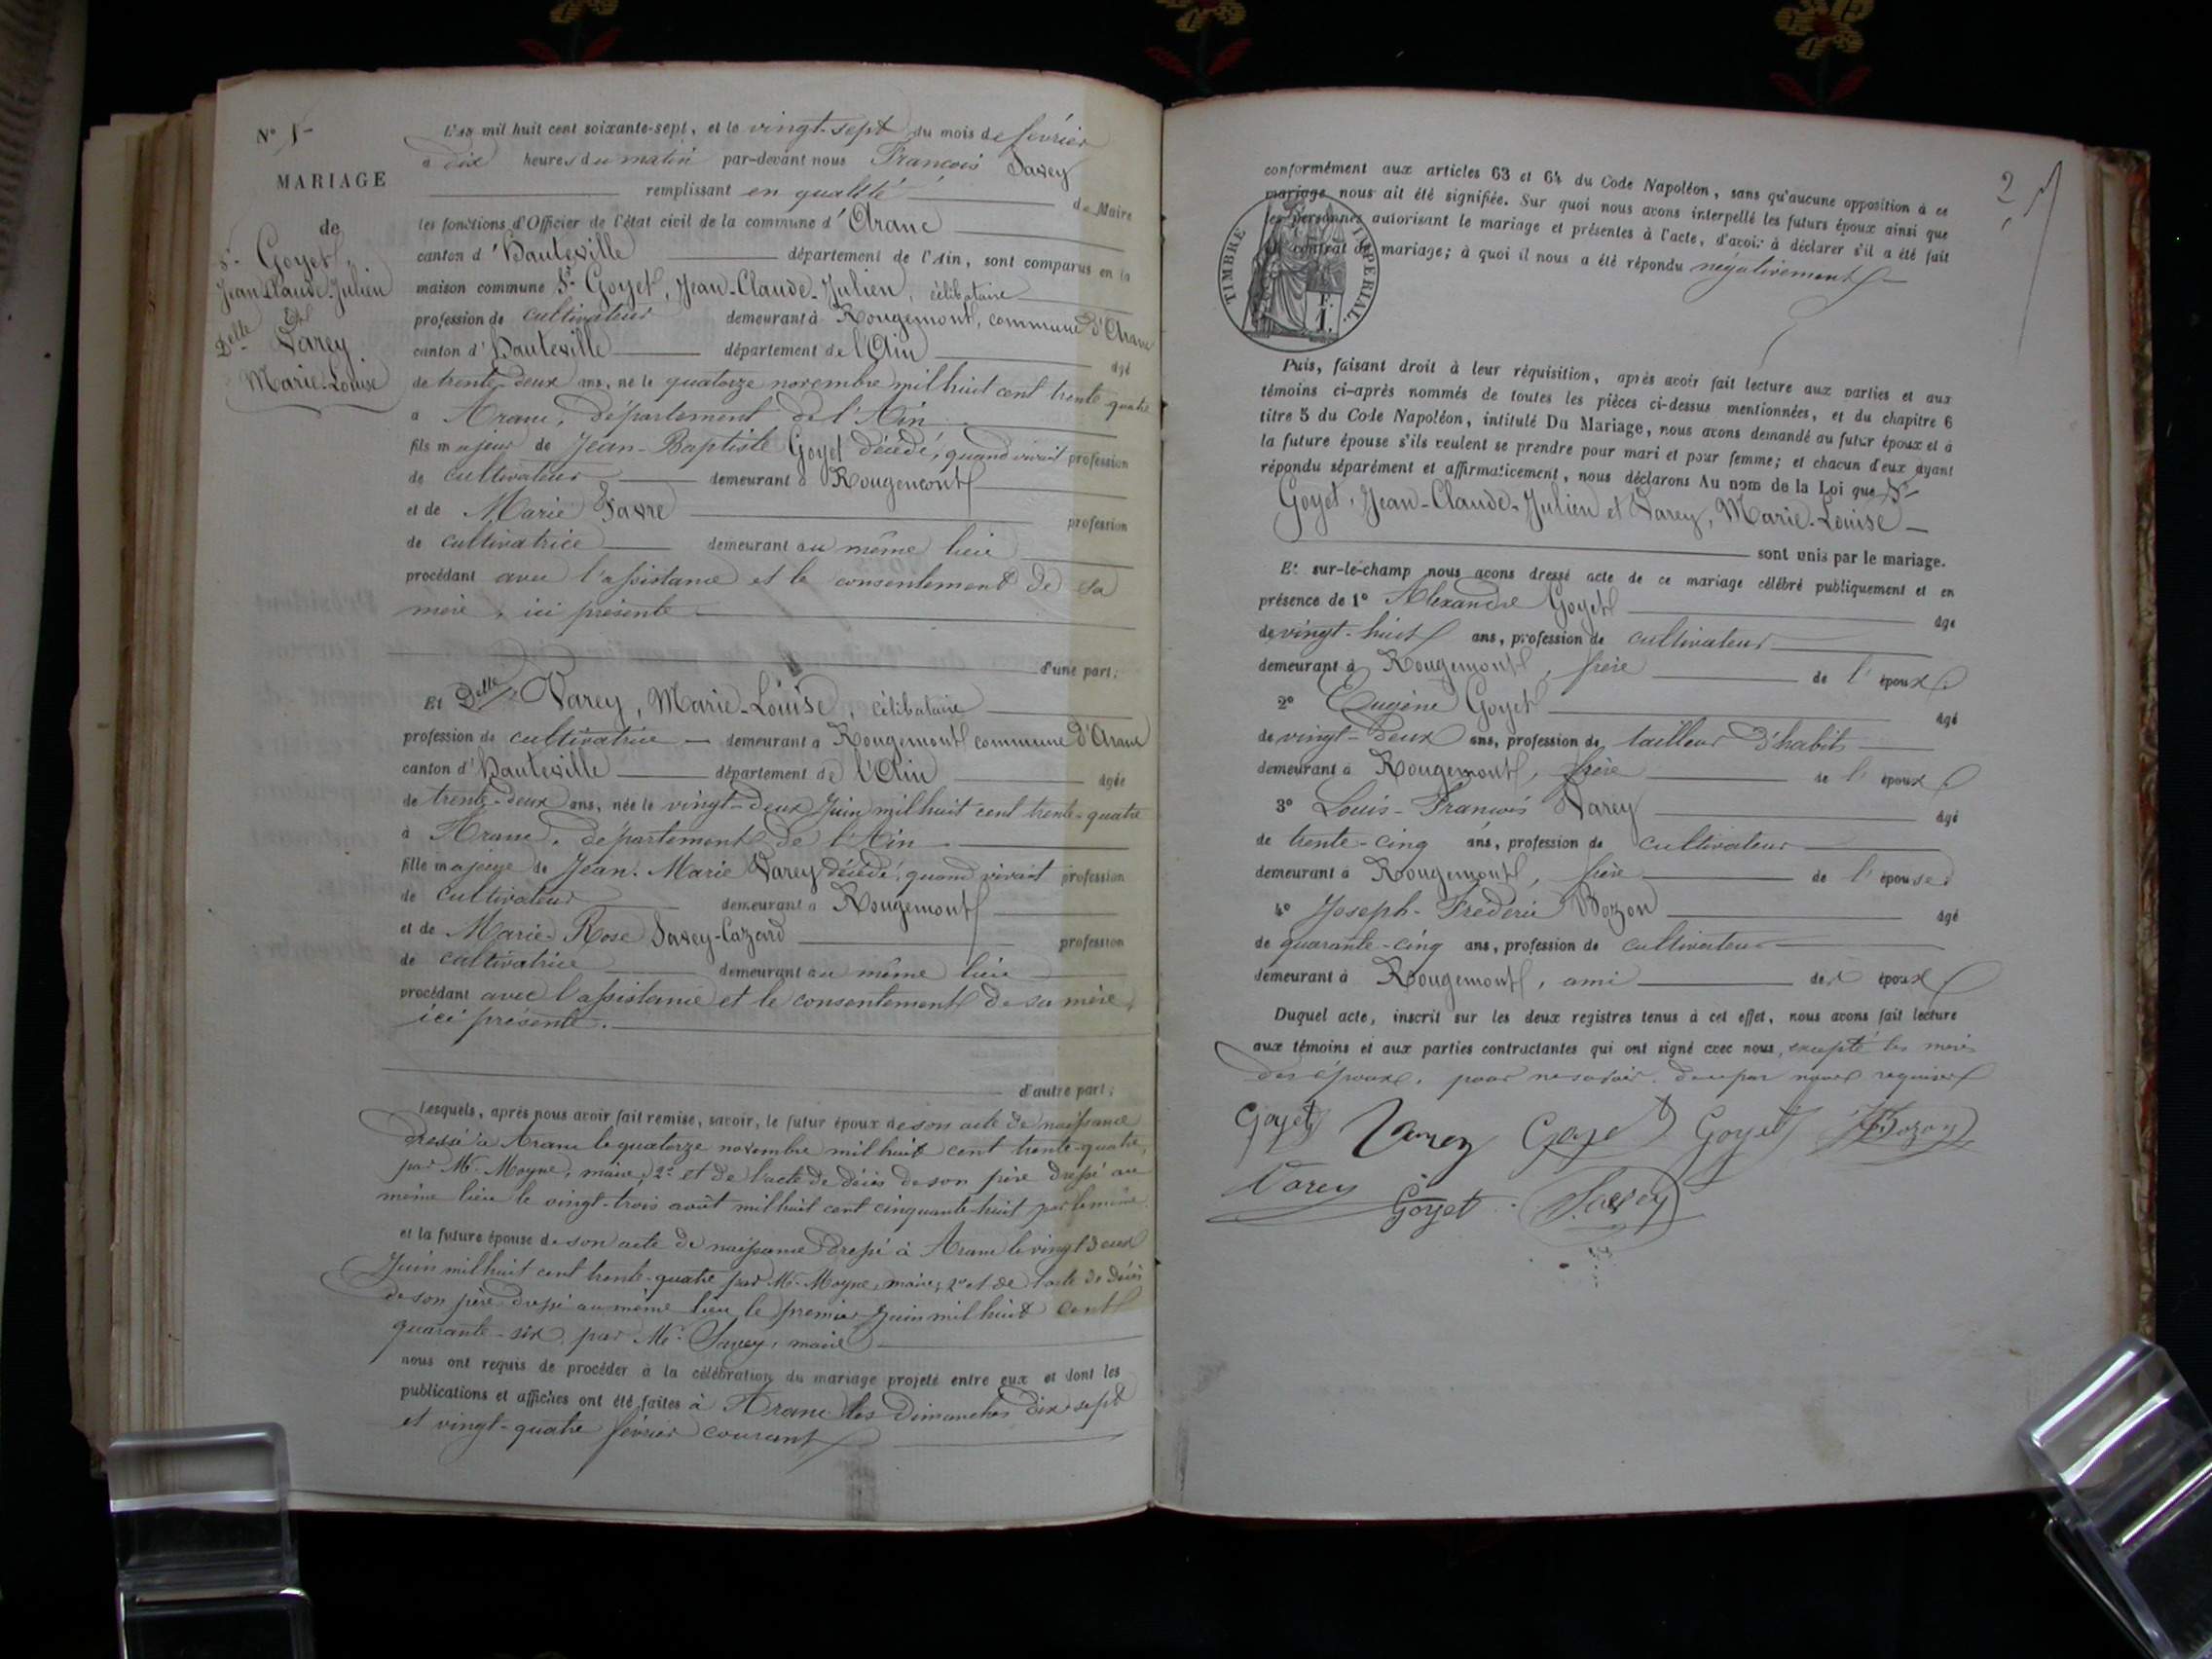 N° 1
MARIAGE
de
Sr Goyet,
Jean-Claude-Julien
Et
Delle Varey
Marie-Louise
L'an mil huit cent soixante-sept, et le vingt-sept du mois de février
à dix heures du matin par-devant nous François Savey
remplissant en qualité de Maire
les fonctions d'Officier de l'état civil de la commune d'Aranc
canton d'Hauteville département de l'Ain, sont comparus en la
maison commune Sr Goyet, Jean-Claude-Julien, célibataire
profession de cultivateur demeurant à Rougemont, commune d'Aranc
canton d'Hauteville département de l'Ain âgé
de trente-deux ans, né le quatorze novembre mil huit cent trente quatre
à Aranc, département de l'Ain
fils majeur de Jean-Baptiste Goyet décédé, quand vivait profession
de cultivateur demeurant à Rougemont
et de Marie Favre profession
de cultivatrice demeurant au même lieu
procédant avec l'assistance et le consentement de sa
mère, ici présente
d'une part;
Et Delle Varey, Marie-Louise, célibataire
profession de cultivatrice demeurant à Rougemont commune d'Aranc
canton d'Hauteville département de l'Ain âgée
de trente-deux ans, née le vingt-deux Juin mil huit cent trente-quatre
à Aranc, département de l'Ain
fille majeure de Jean-Marie Varey décédé, quand vivait profession
de cultivateur demeurant à Rougemont
et de Marie-Rose Savey-Cazard profession
de cultivatrice demeurant au même lieu
procédant avec l'assistance et le consentement de sa mère,
ici présente.
d'autre part;
Lesquels, après nous avoir fait remise, savoir, le futur époux de son acte de naissance
dressé à Aranc le quatorze novembre mil huit cent trente-quatre,
par Mr. Moyne, maire, 2° et de l'acte de décès de son père dressé au
même lieu le vingt-trois août mil huit cent cinquante-huit par le même
et la future épouse de son acte de naissance dressé à Aranc le vingt deux
Juin mil huit cent trente-quatre par Mr. Moyne, maire, 2° et de l'acte de décès
de son père dressé au même lieu le premier Juin mil huit cent
quarante-six par Mr. Savey, maire
nous ont requis de procéder à la célébration du mariage projeté entre eux et dont les
publications et affiches ont été faites à Aranc les Dimanches dix-sept
et vingt-quatre février courant
2
conformément aux articles 63 et 64 du Code Napoléon, sans qu'aucune opposition à ce
mariage nous ait été signifiée. Sur quoi nous avons interpellé les futurs époux ainsi que
les personnes autorisant le mariage et présentes à l'acte, d'avoir à déclarer s'il a été fait
un contrat de mariage; à quoi il nous a été répondu négativement
TIMBRE IMPERIAL.
F.
1.
Puis, faisant droit à leur réquisition, après avoir fait lecture aux parties et aux
témoins ci-après nommés de toutes les pièces ci-dessus mentionnées, et du chapitre 6
titre 5 du Code Napoléon, intitulé Du Mariage, nous avons demandé au futur époux et à
la future épouse s'ils veulent se prendre pour mari et pour femme; et chacun d'eux ayant
répondu séparément et affirmativement, nous déclarons Au nom de la Loi que Sr
Goyet, Jean-Claude-Julien et Varey, Marie-Louise
sont unis par le mariage.
Et sur-le-champ nous avons dressé acte de ce mariage célébré publiquement et en
présence de 1° Alexandre Goyet âgé
de vingt-huit ans, profession de cultivateur
demeurant à Rougemont, frère de l'époux.
2° Eugène Goyet âgé
de vingt-deux ans, profession de tailleur d'habits
demeurant à Rougemont, frère de l'époux
3° Louis-François Varey âgé
de trente-cinq ans, profession de cultivateur
demeurant à Rougemont, frère de l'épouse
4° Joseph-Frédéric Bozon âgé
de quarante-cinq ans, profession de cultivateur
demeurant à Rougemont, ami des époux
Duquel acte, inscrit sur les deux registres tenus à cet effet, nous avons fait lecture
aux témoins et aux parties contractantes qui ont signé avec nous, excepté les mères
des époux, pour ne savoir, de ce par nous requises
Goyet Varey Goyet Goyet Bozon
Varey Goyet Savey